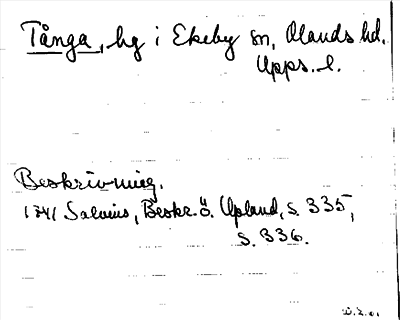 Tånga, hg i Ekeby sn, Olands hd.
Upps. l.
Beskrivning.
1741 Salvius, Beskr. ö. Upland, s. 335,
s. 336.